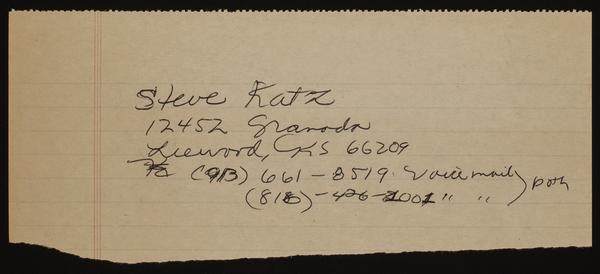 Steve Katz
12452 Granada
Leewood, KS 66209
(913) 661-8519 Voicemail) both
(818)-426-2001 " "